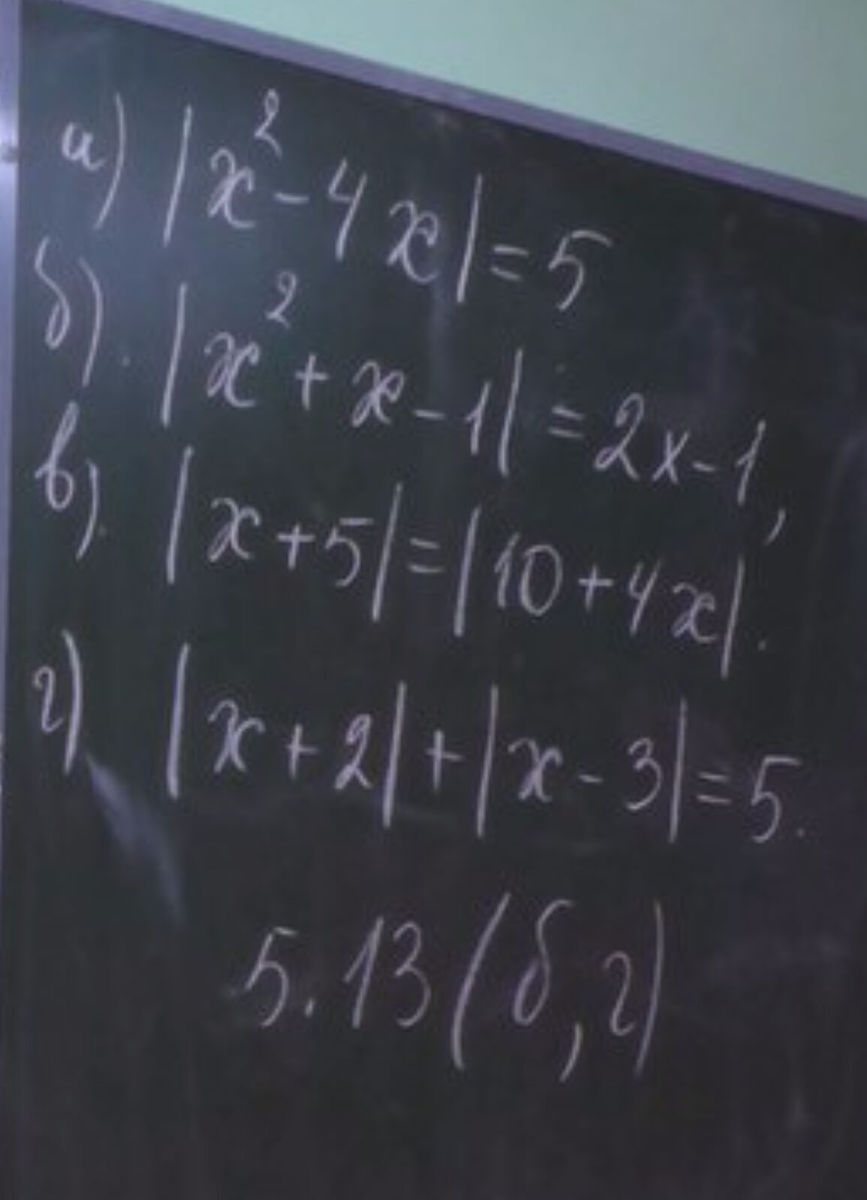 а) |x² - 4x| = 5
б). |x² + x - 1| = 2x - 1,
в). |x + 5| = |10 + 4x|.
г) |x + 2| + |x - 3| = 5.
5.13 (б, г)